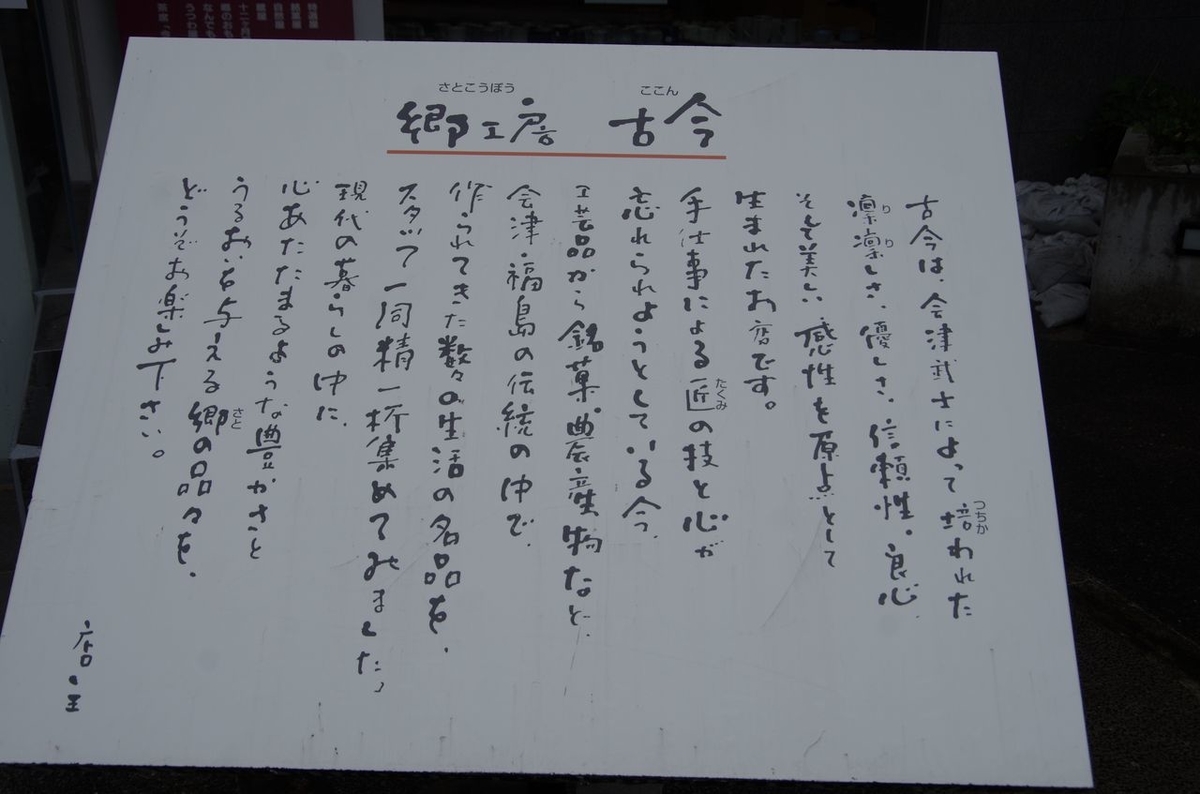 さとこうぼう ここん
郷工房 古今
古今は、会津武士によって培われた
つちか
凛凛しさ、優しさ、信頼性、良心、
りり
そして美しい感性を原点として
生まれたお店です。
手仕事による匠の技と心が
たくみ
忘れられようとしている今、
工芸品から銘菓、農産物など、
会津・福島の伝統の中で、
作られてきた数々の生活の名品を、
スタッフ一同精一杯集めてみました。
現代の暮らしの中に、
心あたたまるような豊かさと
うるおいを与える郷の品々を、
さと
どうぞお楽しみ下さい。
店主